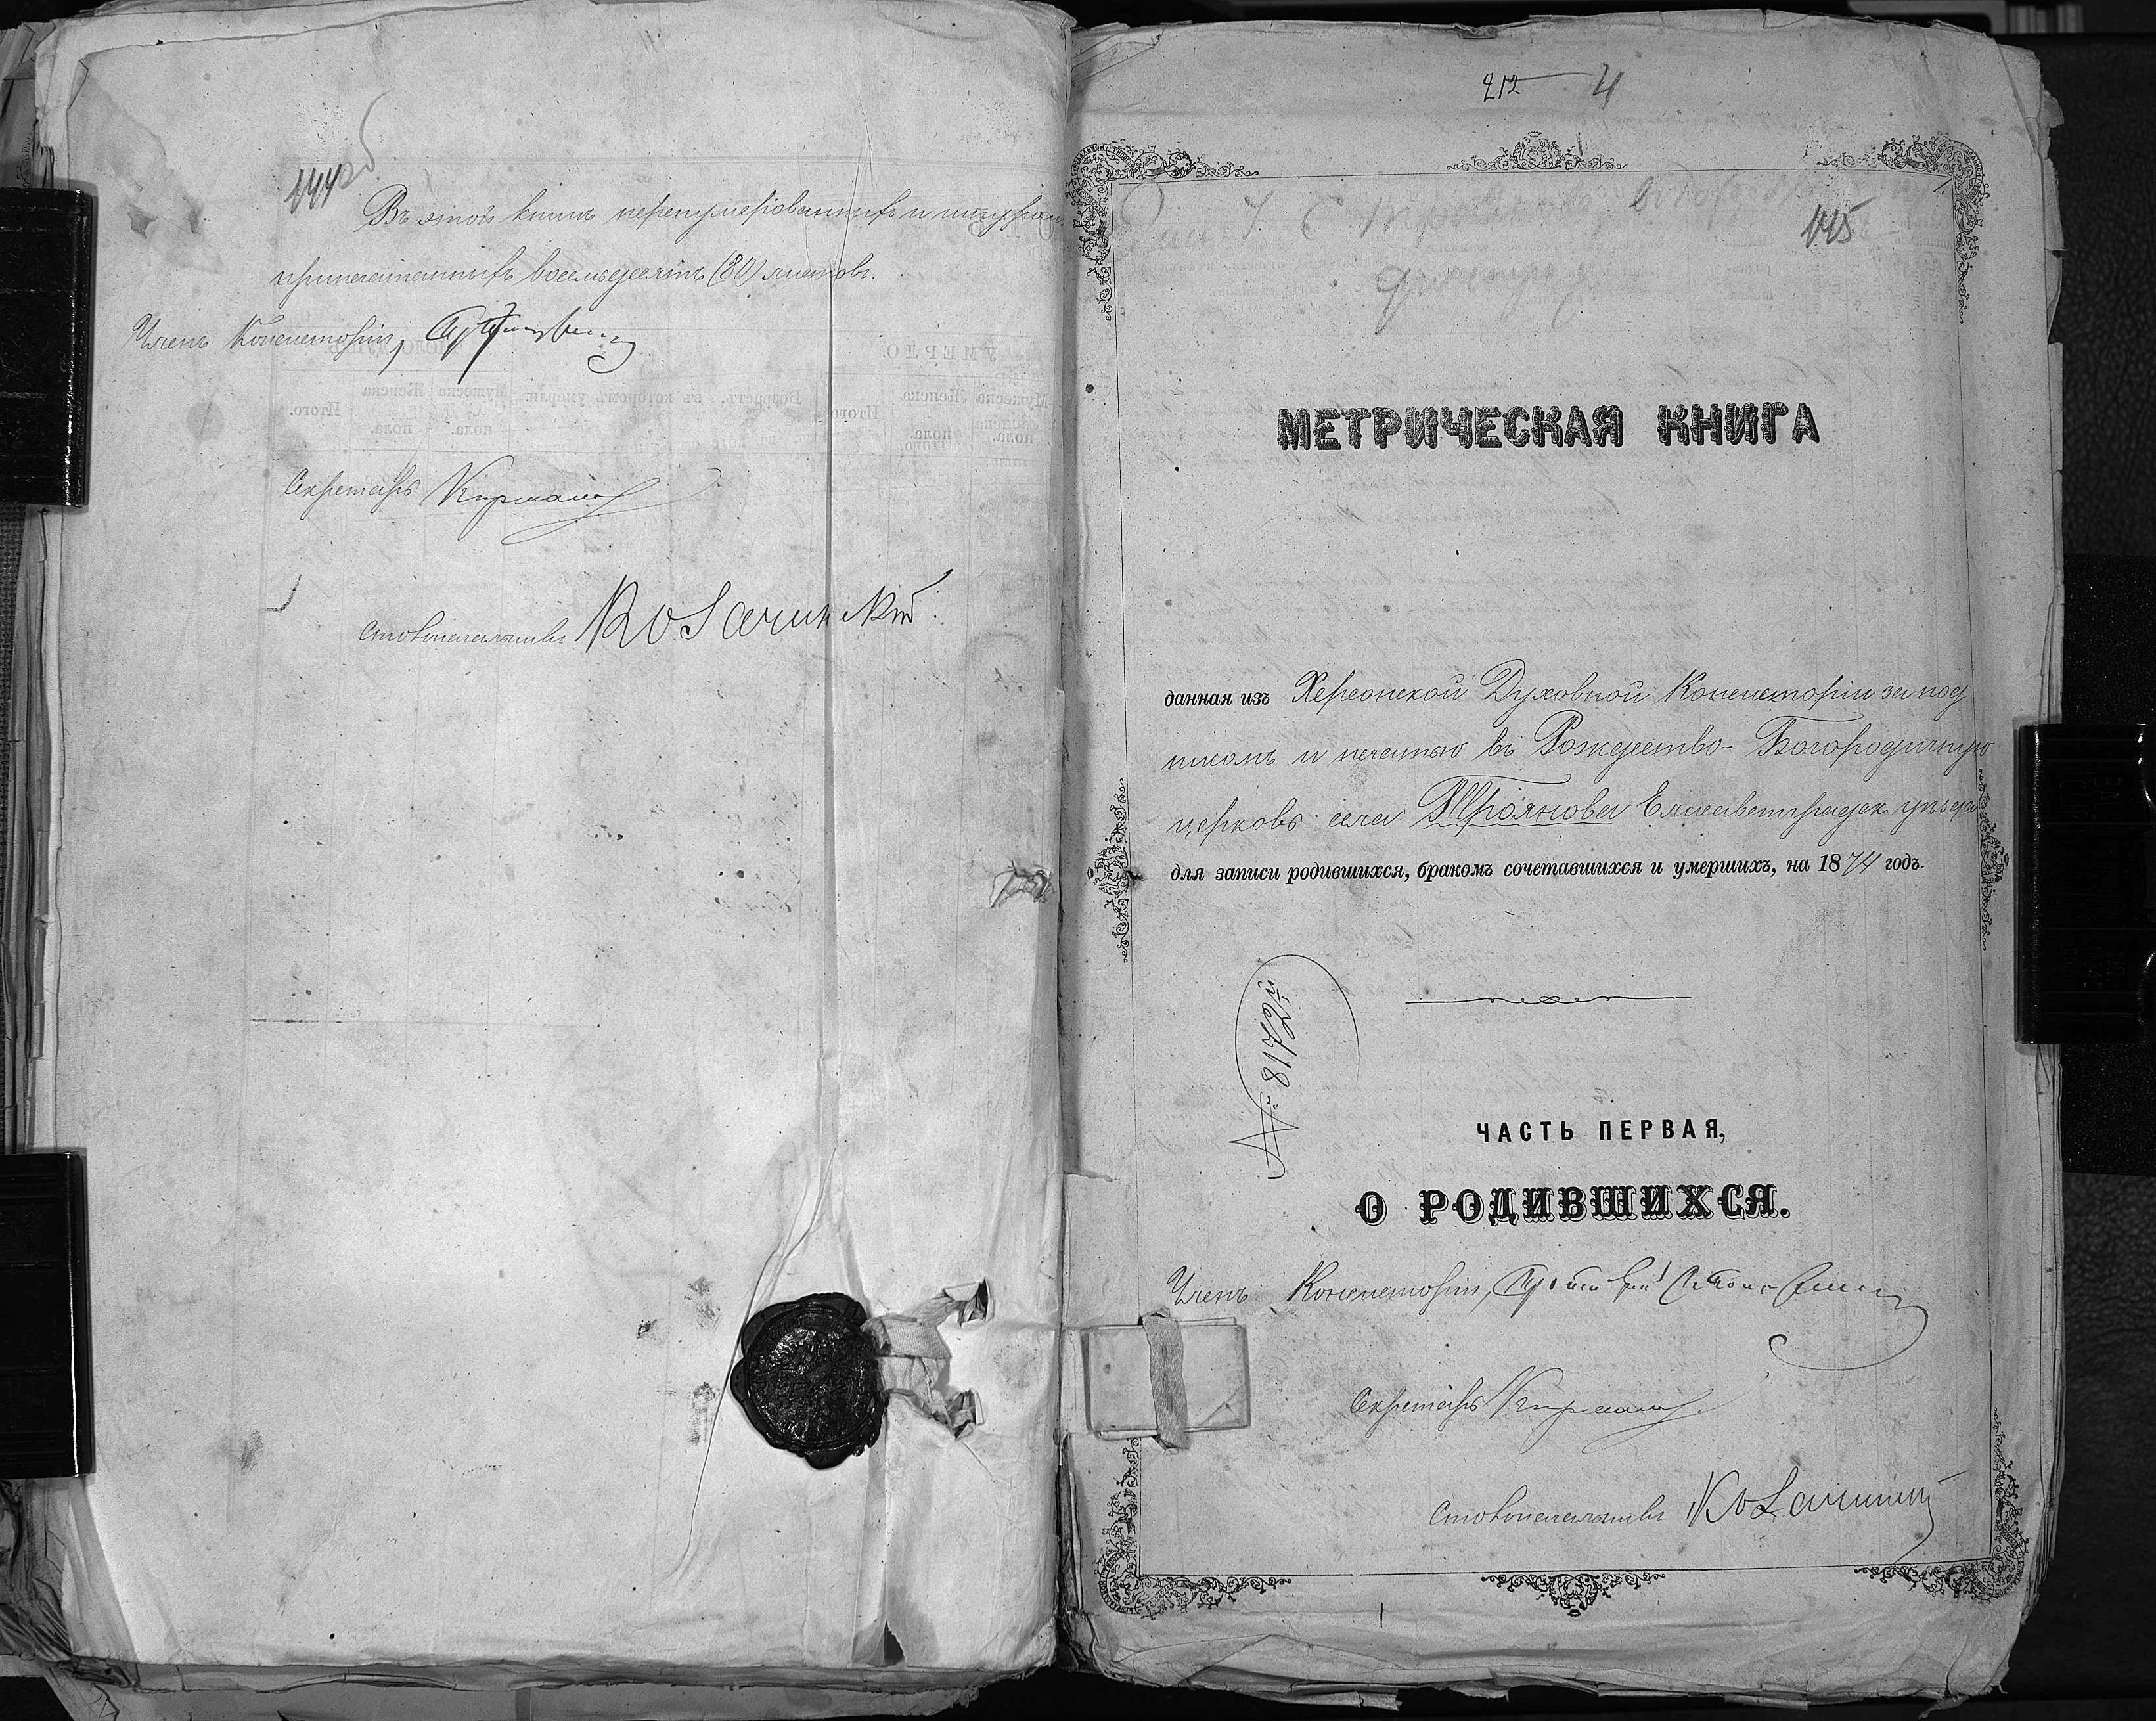 144об
Въ этой книгѣ перенумерованныхъ и шнуром
припечатанныхъ восемьдесятъ (80) листовъ.
Членъ Консисторіи,
Секретарь
Столоначальникъ
212 4
445
МЕТРИЧЕСКАЯ КНИГА
данная изъ Херсонской Духовной Консисторіи за под
писомъ и печатью въ Рождество-Богородичную
церковь села Троянова Елисаветградск. уѣзда
для записи родившихся, бракомъ сочетавшихся и умершихъ, на 1874 годъ.
№ 8172й
ЧАСТЬ ПЕРВАЯ,
О РОДИВШИХСЯ.
Членъ Консисторіи, Протоіерей
Секретарь
Столоначальникъ